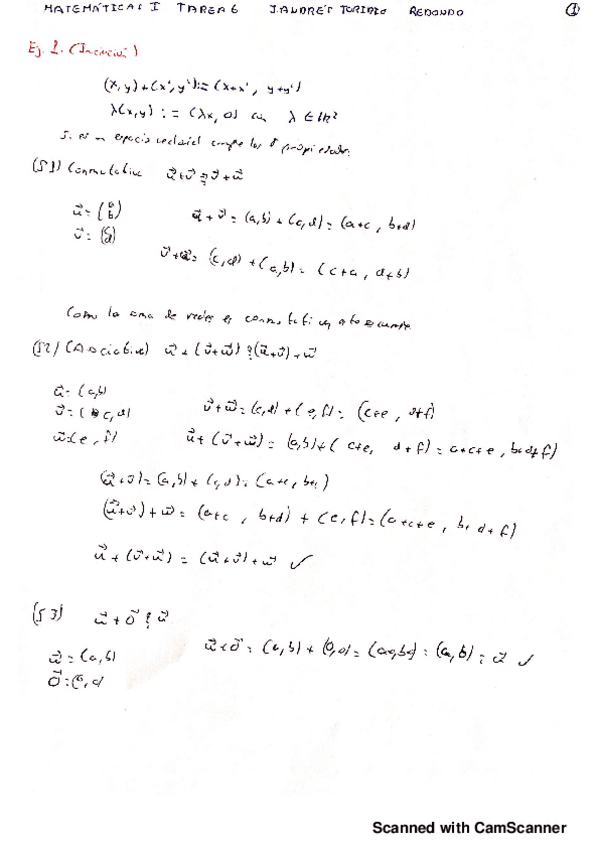 MATEMÁTICAS I TAREA 6 J. ANDRÉS TORIBIO REDONDO ①
Ej. 1.
(x,y)+(x',y'):=(x+x', y+y')
λ(x,y) := (λx, 0) con λ ∈ ℝ²
Si es un espacio vectorial cumple las 8 propiedades.
(S1) Conmutativa u⃗+v⃗ ? v⃗+u⃗
u⃗=(a b) u⃗+v⃗=(a,b)+(c,d)=(a+c, b+d)
v⃗=(c d)
v⃗+u⃗=(c,d)+(a,b)=(c+a, d+b)
Como la suma de reales es conmutativa
(S2) (Asociativa) u⃗+(v⃗+w⃗) ? (u⃗+v⃗)+w⃗
u⃗=(a,b)
v⃗=(c,d) v⃗+w⃗=(c,d)+(e,f)=(c+e, d+f)
w⃗=(e,f) u⃗+(v⃗+w⃗)=(a,b)+(c+e, d+f)=a+c+e, b+d+f)
(u⃗+v⃗)=(a,b)+(c,d)=(a+c, b+d)
(u⃗+v⃗)+w⃗=(a+c, b+d)+(e,f)=(a+c+e, b+d+f)
u⃗+(v⃗+w⃗)=(u⃗+v⃗)+w⃗ ✓
(S3) u⃗+0⃗ ? u⃗
u⃗=(a,b) u⃗+0⃗=(a,b)+(0,0)=(a+0,b+0)=(a,b)=u⃗ ✓
0⃗=(0,0
Scanned with CamScanner